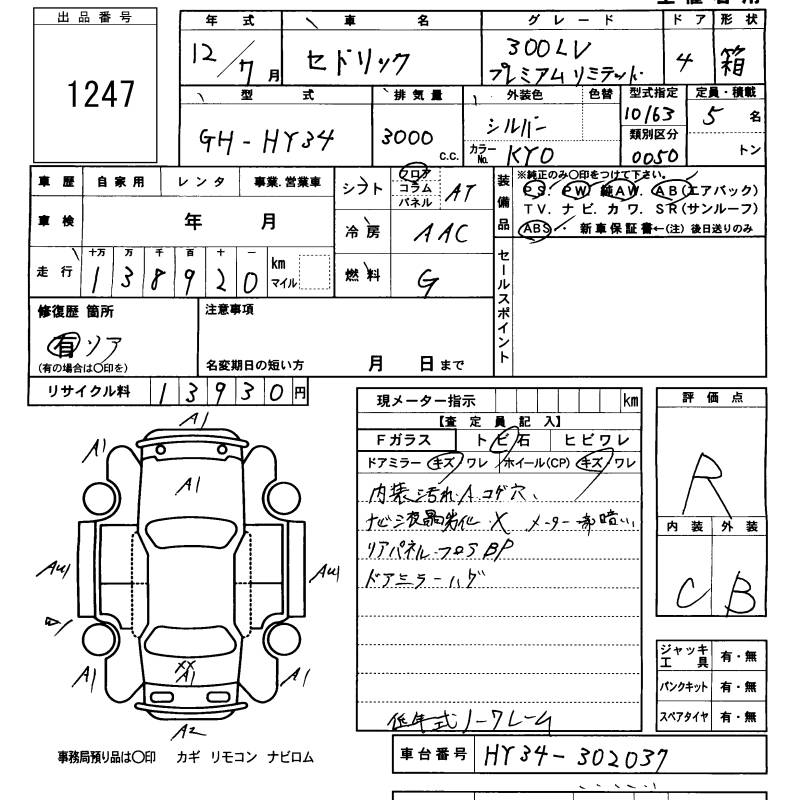 出品番号
1247
年式 車名 グレード ドア 形状
12/7月 セドリック 300LV プレミアムリミテッド 4 箱
型式 排気量 外装色 色替 型式指定 定員・積載
GH-HY34 3000 c.c. シルバー 10163 5名
カラーNo. KY0 類別区分 0050 トン
車歴 自家用 レンタ 事業.営業車
シフト フロア コラム パネル AT
装備品 ※純正のみ〇印をつけて下さい。
PS. PW. 純AW. AB(エアバック)
TV. ナビ. カワ. SR(サンルーフ)
ABS. 新車保証書←(注) 後日送りのみ
車検 年 月
冷房 AAC
走行 十万 万 千 百 十 一
138920 km マイル
燃料 G
セールスポイント
修復歴 箇所
有 リア
(有の場合は〇印を)
注意事項
名変期日の短い方 月 日まで
リサイクル料 13930円
現メーター指示 km
評価点
【査定員記入】
Fガラス トビ石 ヒビワレ
ドアミラー キズ ワレ ホイール(CP) キズ.ワレ
R
内装汚れ.A コゲ穴、
ナビ液晶劣化 X メーター 暗い
内装 外装
リアパネル フロアBP
C B
ドアミラーハゲ
低年式ノークレーム
A1
A1
A1
A1
AW1
AW1
A1
XX
A1
A1
A2
ジャッキ工具 有・無
パンクキット 有・無
スペアタイヤ 有・無
事務局預り品は〇印 カギ リモコン ナビロム
車台番号 HY34-302037